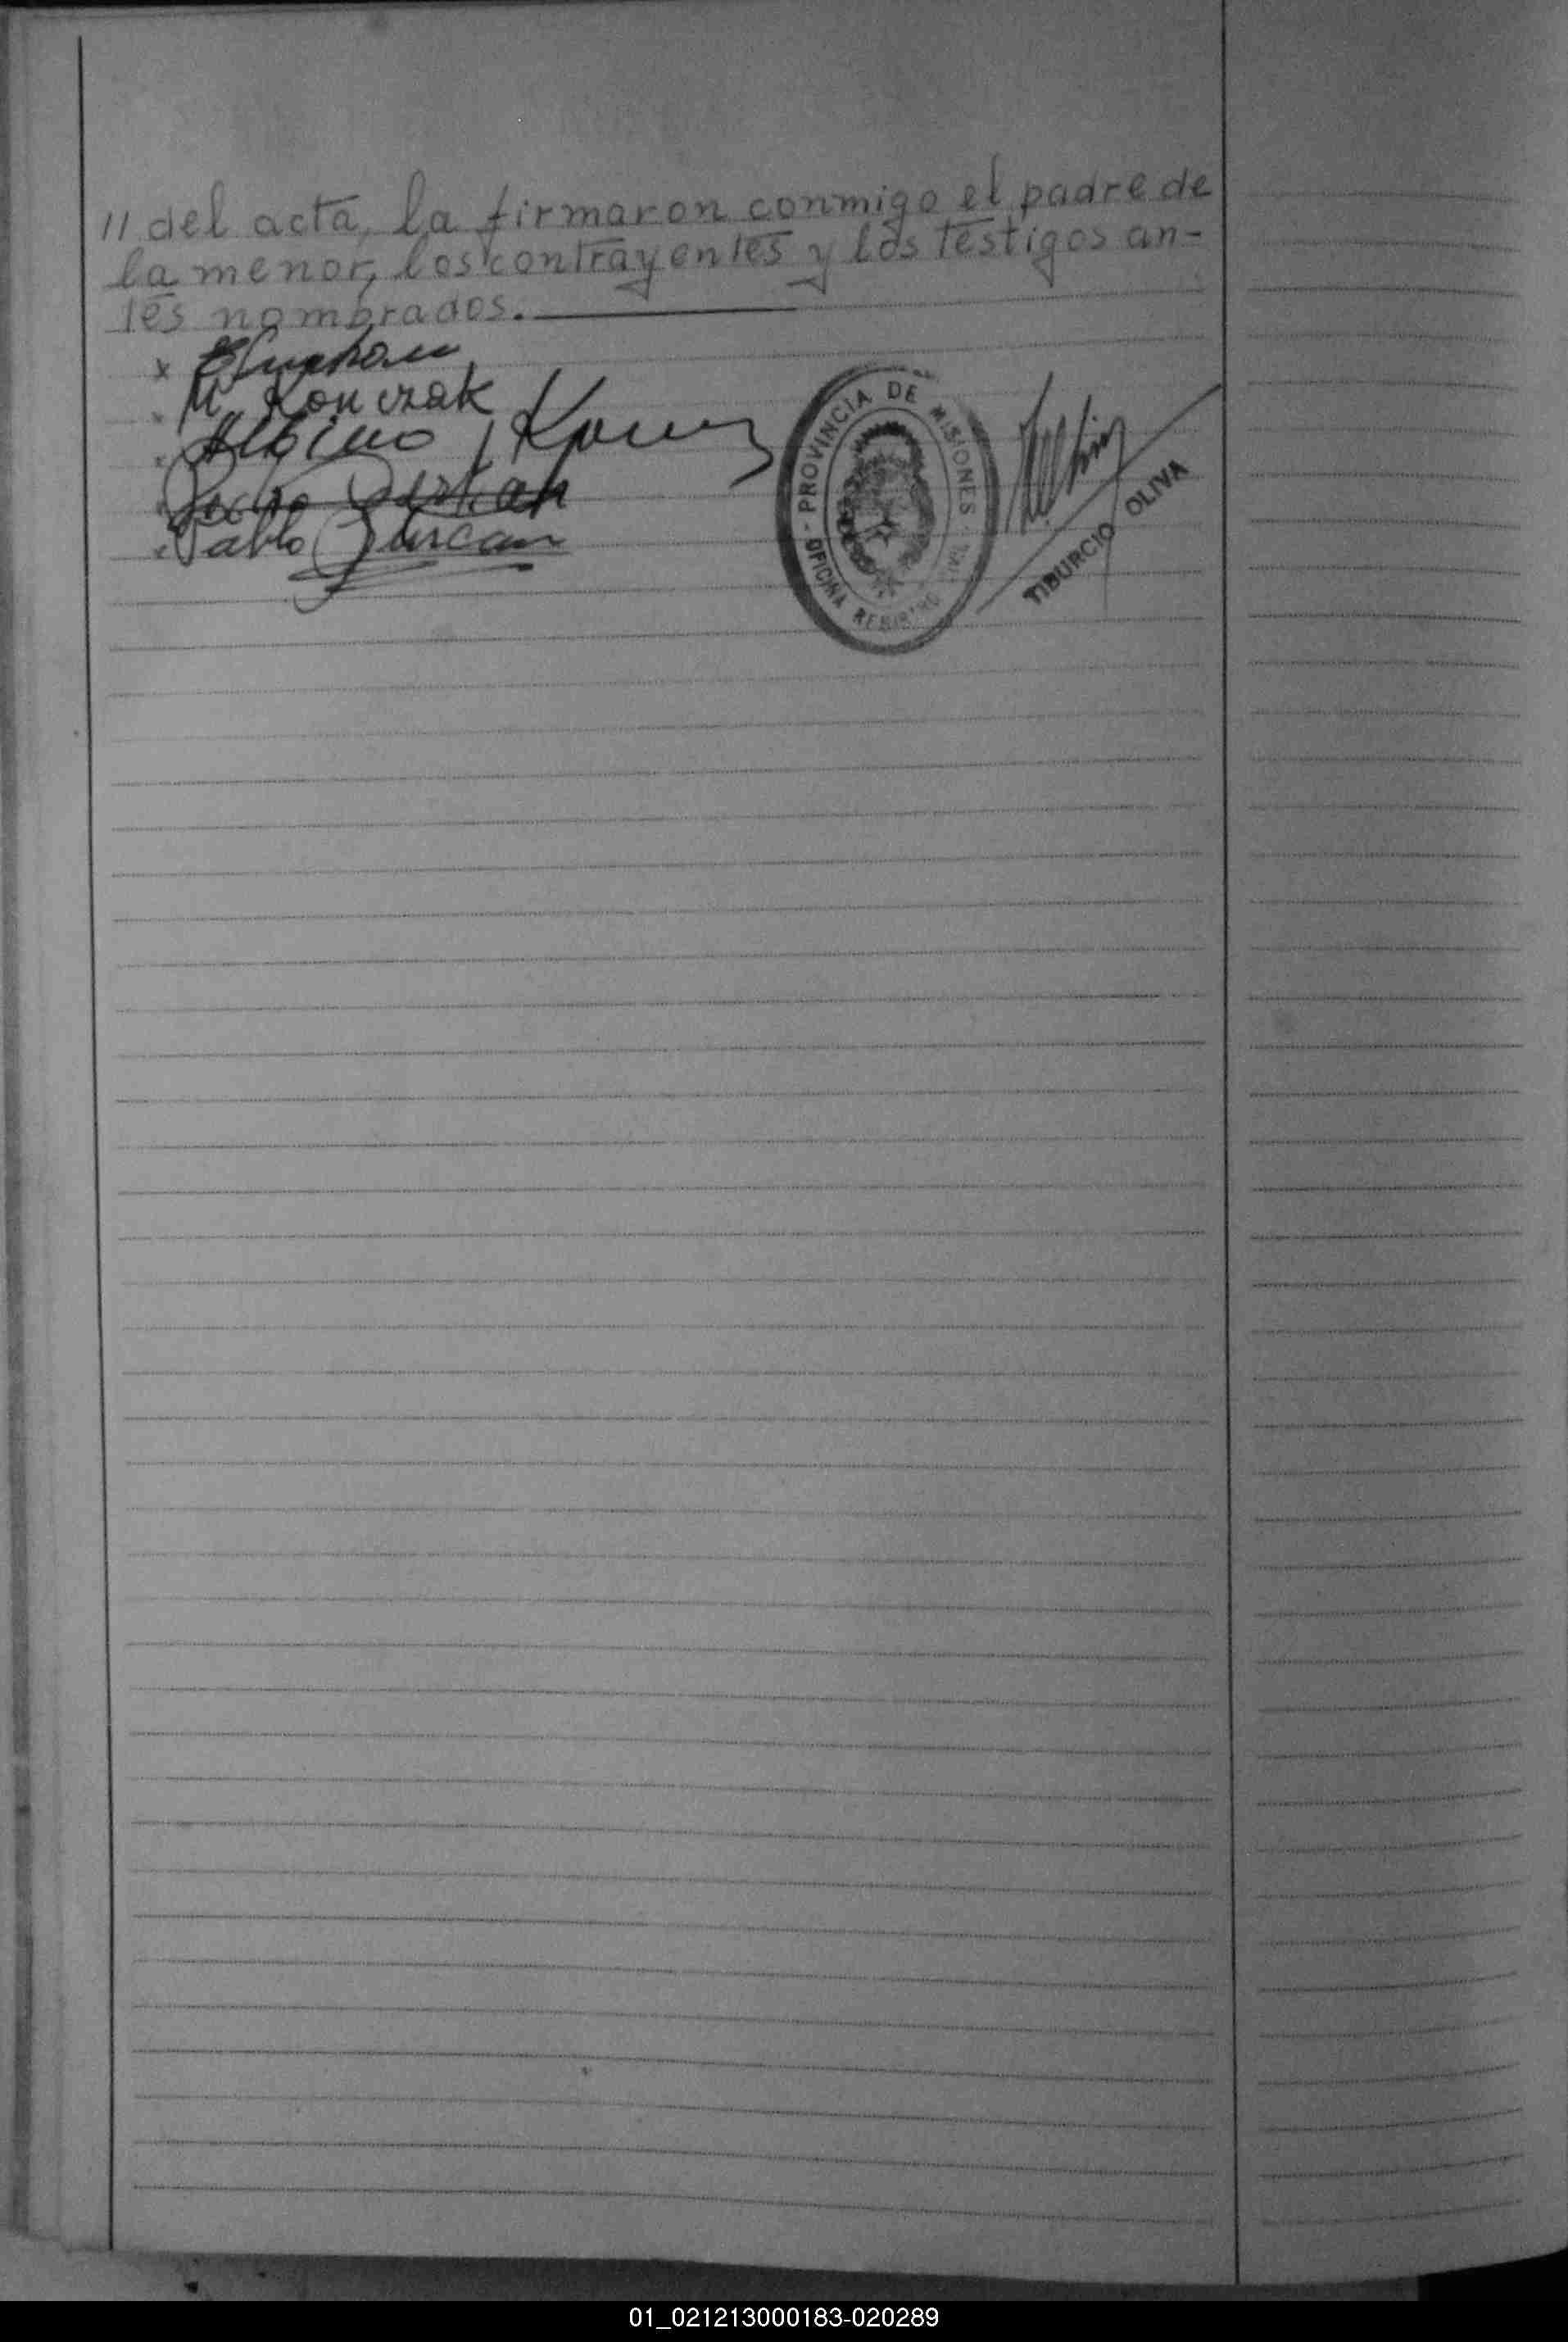 // del acta, la firmaron conmigo el padre de
la menor, los contrayentes y los testigos an-
tes nombrados.
x
M. Konczak
Albino
Pedro
Pablo Durcan
- PROVINCIA DE MISIONES -
OFICINA REGISTRO CIVIL
TIBURCIO OLIVA
01_021213000183-020289